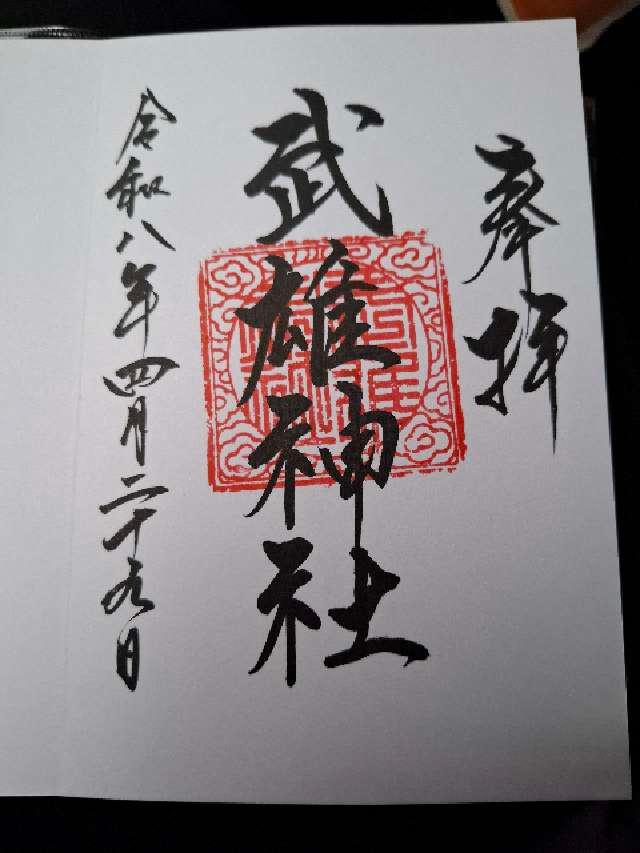 奉拝
武雄神社
令和八年四月二十九日